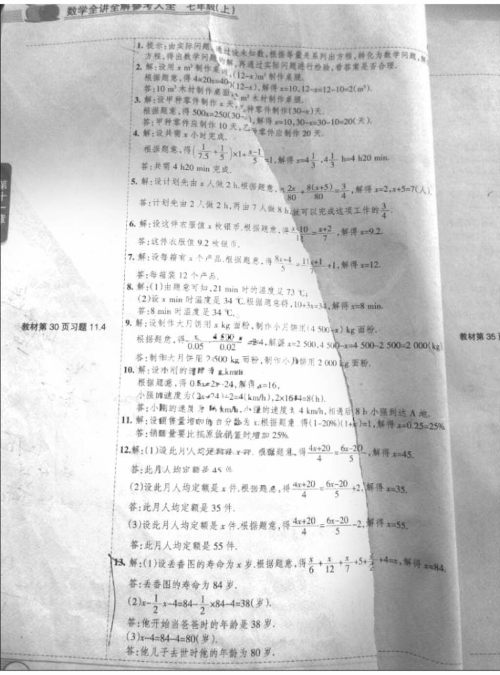 数学全讲全解参考大全 七年级(上)
1. 提示:由实际问题,通过设未知数,根据等量关系列出方程,转化为数学问题,
方程,得出数学问题的解,再通过实际问题进行检验,看答案是否合理.
2. 解:设用x m³制作桌面,(12-x)m³制作桌腿.
根据题意,得4×20x=400(12-x),解得x=10,12-x=12-10=2(m³).
答:10 m³木材制作桌面,2 m³木材制作桌腿.
3. 解:设甲种零件制作x天,乙种零件制作(30-x)天.
根据题意,得500x=250(30-x),解得x=10,30-x=30-10=20(天).
答:甲种零件应制作10天,乙种零件应制作20天.
4. 解:设共需x小时完成.
根据题意,得(1/7.5+1/5)×1+(x-1)/5=1,解得x=4 1/3, 4 1/3 h=4 h20 min.
答:共需4 h20 min完成.
5. 解:设计划先由x人做2 h.根据题意,得2x/80+8(x+5)/80=3/4,解得x=2,x+5=7(人).
答:计划先由2人做2 h,再由7人做8 h,就可以完成这项工作的3/4.
6. 解:设这件衣服值x枚银币.根据题意,得(x+10)/12=(x+2)/7,解得x=9.2.
答:这件衣服值9.2枚银币.
7. 解:设每箱有x个产品.根据题意,得(8x-4)/5=(11x+1)/7+1,解得x=12.
答:每箱装12个产品.
8. 解:(1)由题意可知,21 min时的温度是73 ℃;
(2)设x min时温度是34 ℃.根据题意得,10+3x=34,解得x=8 min.
答:8 min时温度是34 ℃.
教材第30页习题11.4
9. 解:设制作大月饼用x kg面粉,制作小月饼用(4 500-x) kg面粉.
根据题意,得 0.05 0.02 解得x=2 500,4 500-x=4 500-2 500=2 000(kg)
教材第35页
答:制作大月饼用2 500 kg面粉,制作小月饼用2 000 kg面粉.
10. 解:设小刚的速度为x km/h
根据题意,得0.5x=2x-24,解得x=16,
小强的速度为(2x-24)÷2=4(km/h),2×16÷4=8(h).
答:小刚的速度为16 km/h,小强的速度为4 km/h,相遇后8 h小强到达A地.
11. 解:设销售量增加的百分数为x.根据题意得(1-20%)(1+x)=1,解得x=0.25=25%
答:销售量要比按原价销售时增加25%.
12.解:(1)设此月人均定额是x件.根据题意,得(4x+20)/4=(6x-20)/5,解得x=45.
答:此月人均定额是45件.
(2)设此月人均定额是x件,根据题意,得(4x+20)/4=(6x-20)/5+2,解得x=35.
答:此月人均定额是35件.
(3)设此月人均定额是x件.根据题意,得(4x+20)/4=(6x-20)/5-2,解得x=55.
答:此月人均定额是55件.
13. 解:(1)设丢番图的寿命为x岁.根据题意,得x/6+x/12+x/7+5+x/2+4=x,解得x=84.
答:丢番图的寿命为84岁.
(2)x-1/2x-4=84-1/2×84-4=38(岁).
答:他开始当爸爸时的年龄是38岁.
(3)x-4=84-4=80(岁).
答:他儿子去世时他的年龄为80岁.
第十一章